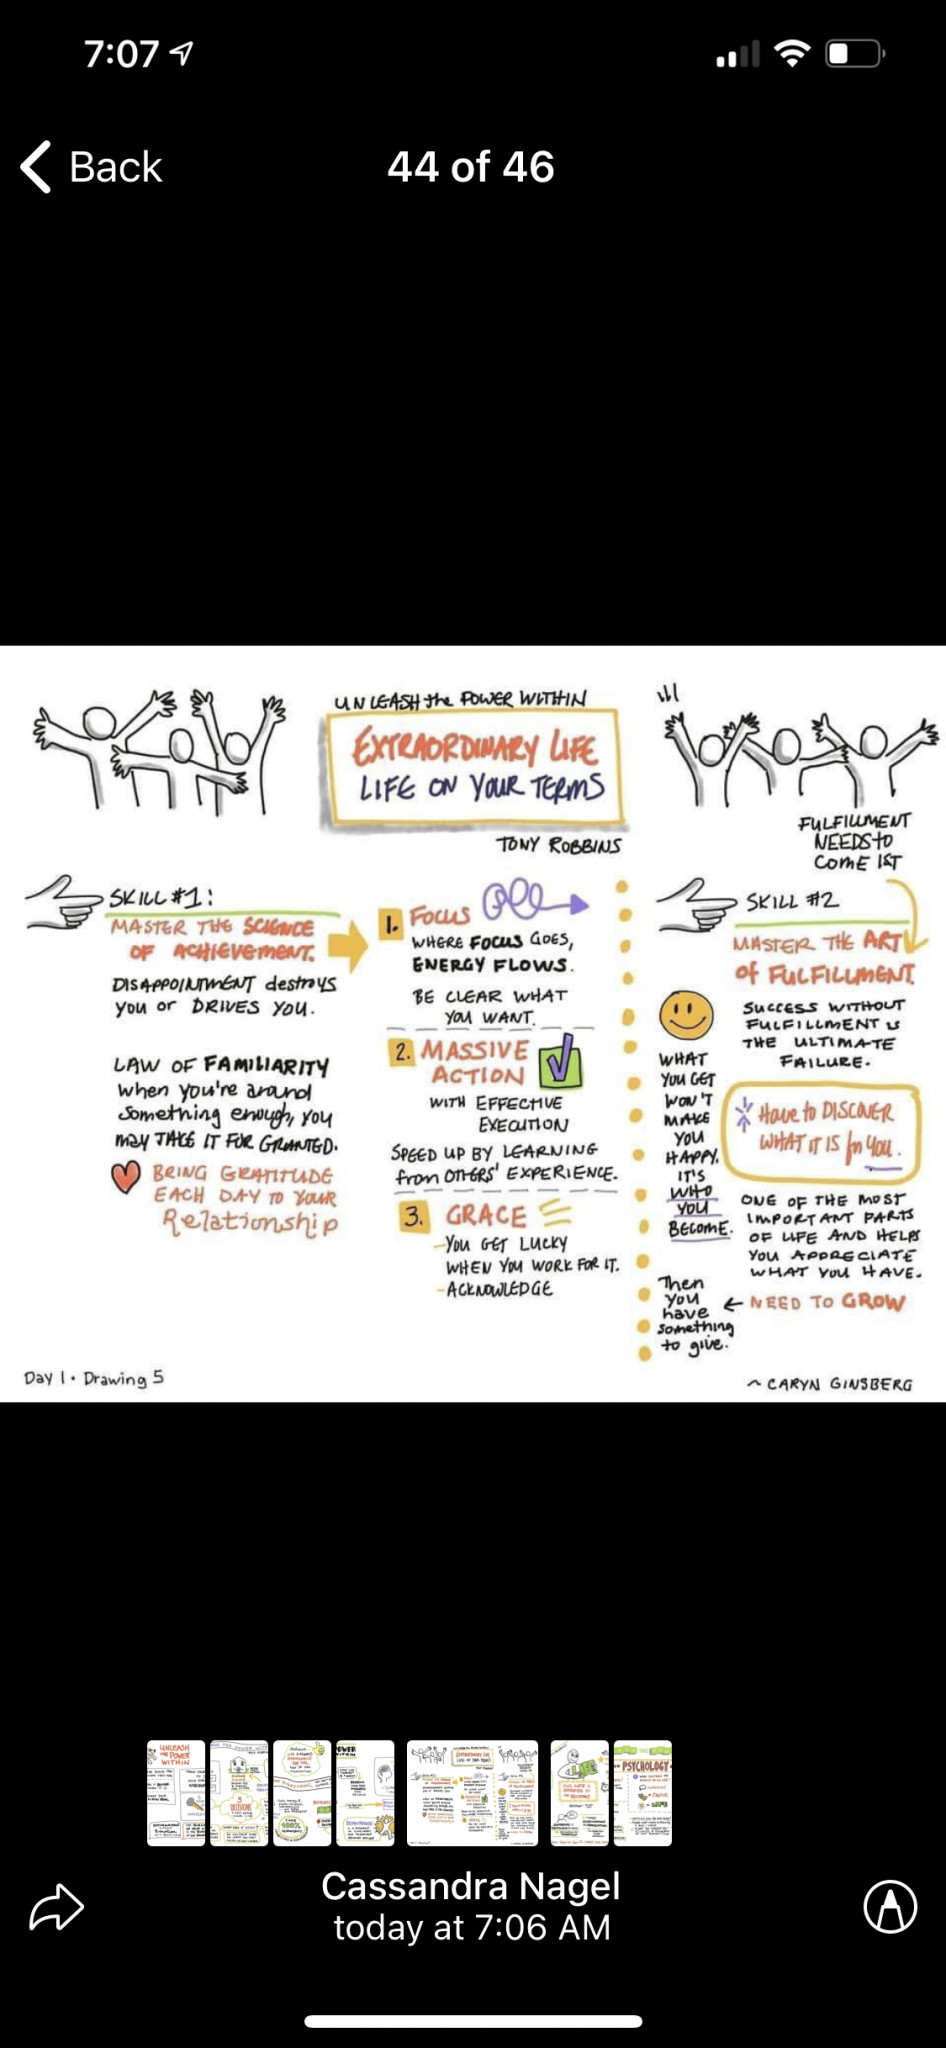 7:07
Back
44 of 46
UNLEASH the POWER WITHIN
EXTRAORDINARY LIFE
LIFE ON YOUR TERMS
TONY ROBBINS
SKILL #1:
MASTER THE SCIENCE
OF ACHIEVEMENT.
DISAPPOINTMENT destroys
you or DRIVES YOU.
LAW OF FAMILIARITY
when you're around
something enough, you
may TAKE IT FOR GRANTED.
BRING GRATITUDE
EACH DAY TO YOUR
Relationship
1. FOCUS
WHERE FOCUS GOES,
ENERGY FLOWS.
BE CLEAR WHAT
YOU WANT.
2. MASSIVE
ACTION
WITH EFFECTIVE
EXECUTION
SPEED UP BY LEARNING
from OTHERS' EXPERIENCE.
3. GRACE
-YOU GET LUCKY
WHEN YOU WORK FOR IT.
-ACKNOWLEDGE
FULFILLMENT
NEEDS to
COME 1ST
SKILL #2
MASTER THE ART
of FULFILLMENT.
SUCCESS WITHOUT
FULFILLMENT IS
THE ULTIMATE
FAILURE.
WHAT
YOU GET
WON'T
MAKE
YOU
HAPPY.
IT'S
WHO
YOU
BECOME.
Have to DISCOVER
WHAT IT IS for YOU.
ONE OF THE MOST
IMPORTANT PARTS
OF LIFE AND HELPS
YOU APPRECIATE
WHAT YOU HAVE.
← NEED TO GROW
Then
you
have
something
to give.
Day 1 • Drawing 5
~ CARYN GINSBERG
UNLEASH
the POWER
WITHIN
3
DECISIONS
100%
POWER
LIFE
PSYCHOLOGY
Cassandra Nagel
today at 7:06 AM